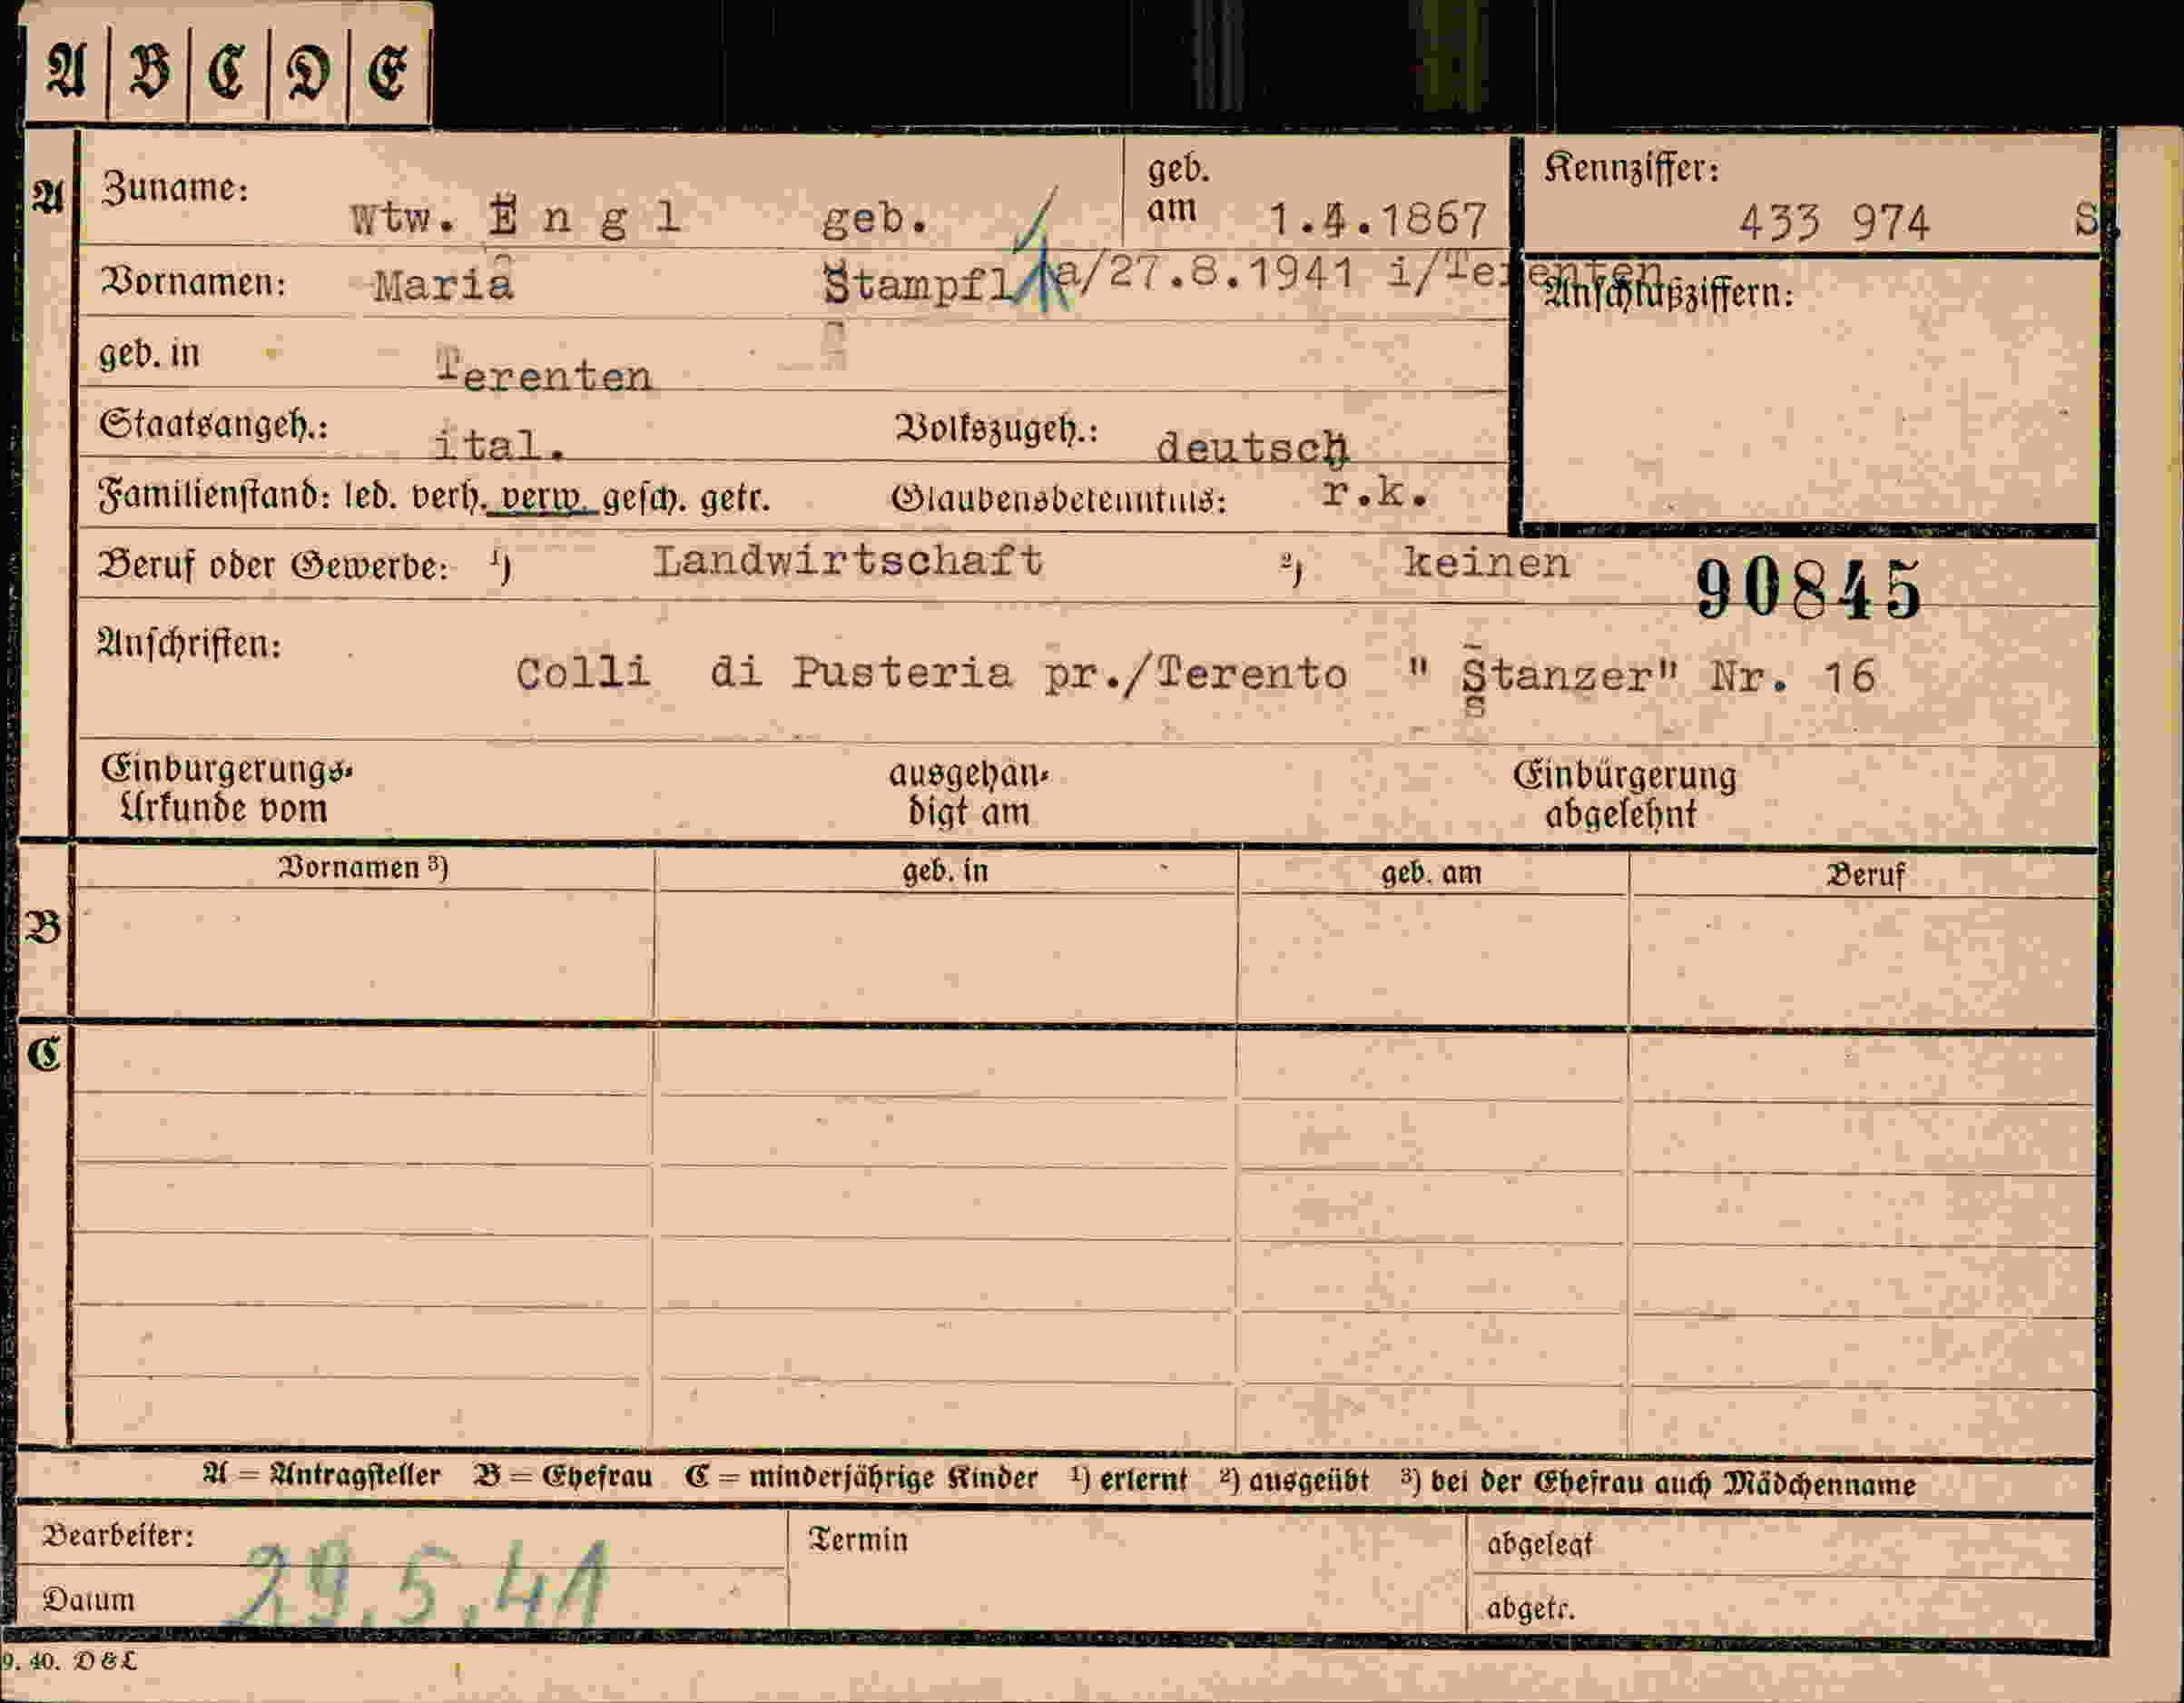 A B C D E
A Zuname: Wtw. E n g l geb. geb. am 1.4.1867 Kennziffer: 433 974 S
Vornamen: Maria Stampfl a/27.8.1941 i/Terenten Anschlußziffern:
geb. in Terenten
Staatsangeh.: ital. Volkszugeh.: deutsch
Familienstand: led. verh. verw. gesch. getr. Glaubensbekenntnis: r.k.
Beruf oder Gewerbe: 1) Landwirtschaft 2) keinen 90845
Anschriften: Colli di Pusteria pr./Terento " Stanzer" Nr. 16
Einbürgerungs- ausgehän- Einbürgerung
Urkunde vom digt am abgelehnt
Vornamen 3) geb. in geb. am Beruf
B
C
A = Antragsteller B = Ehefrau C = minderjährige Kinder 1) erlernt 2) ausgeübt 3) bei der Ehefrau auch Mädchenname
Bearbeiter: Termin abgelegt
Datum 29.5.41 abgetr.
9. 40. D & L